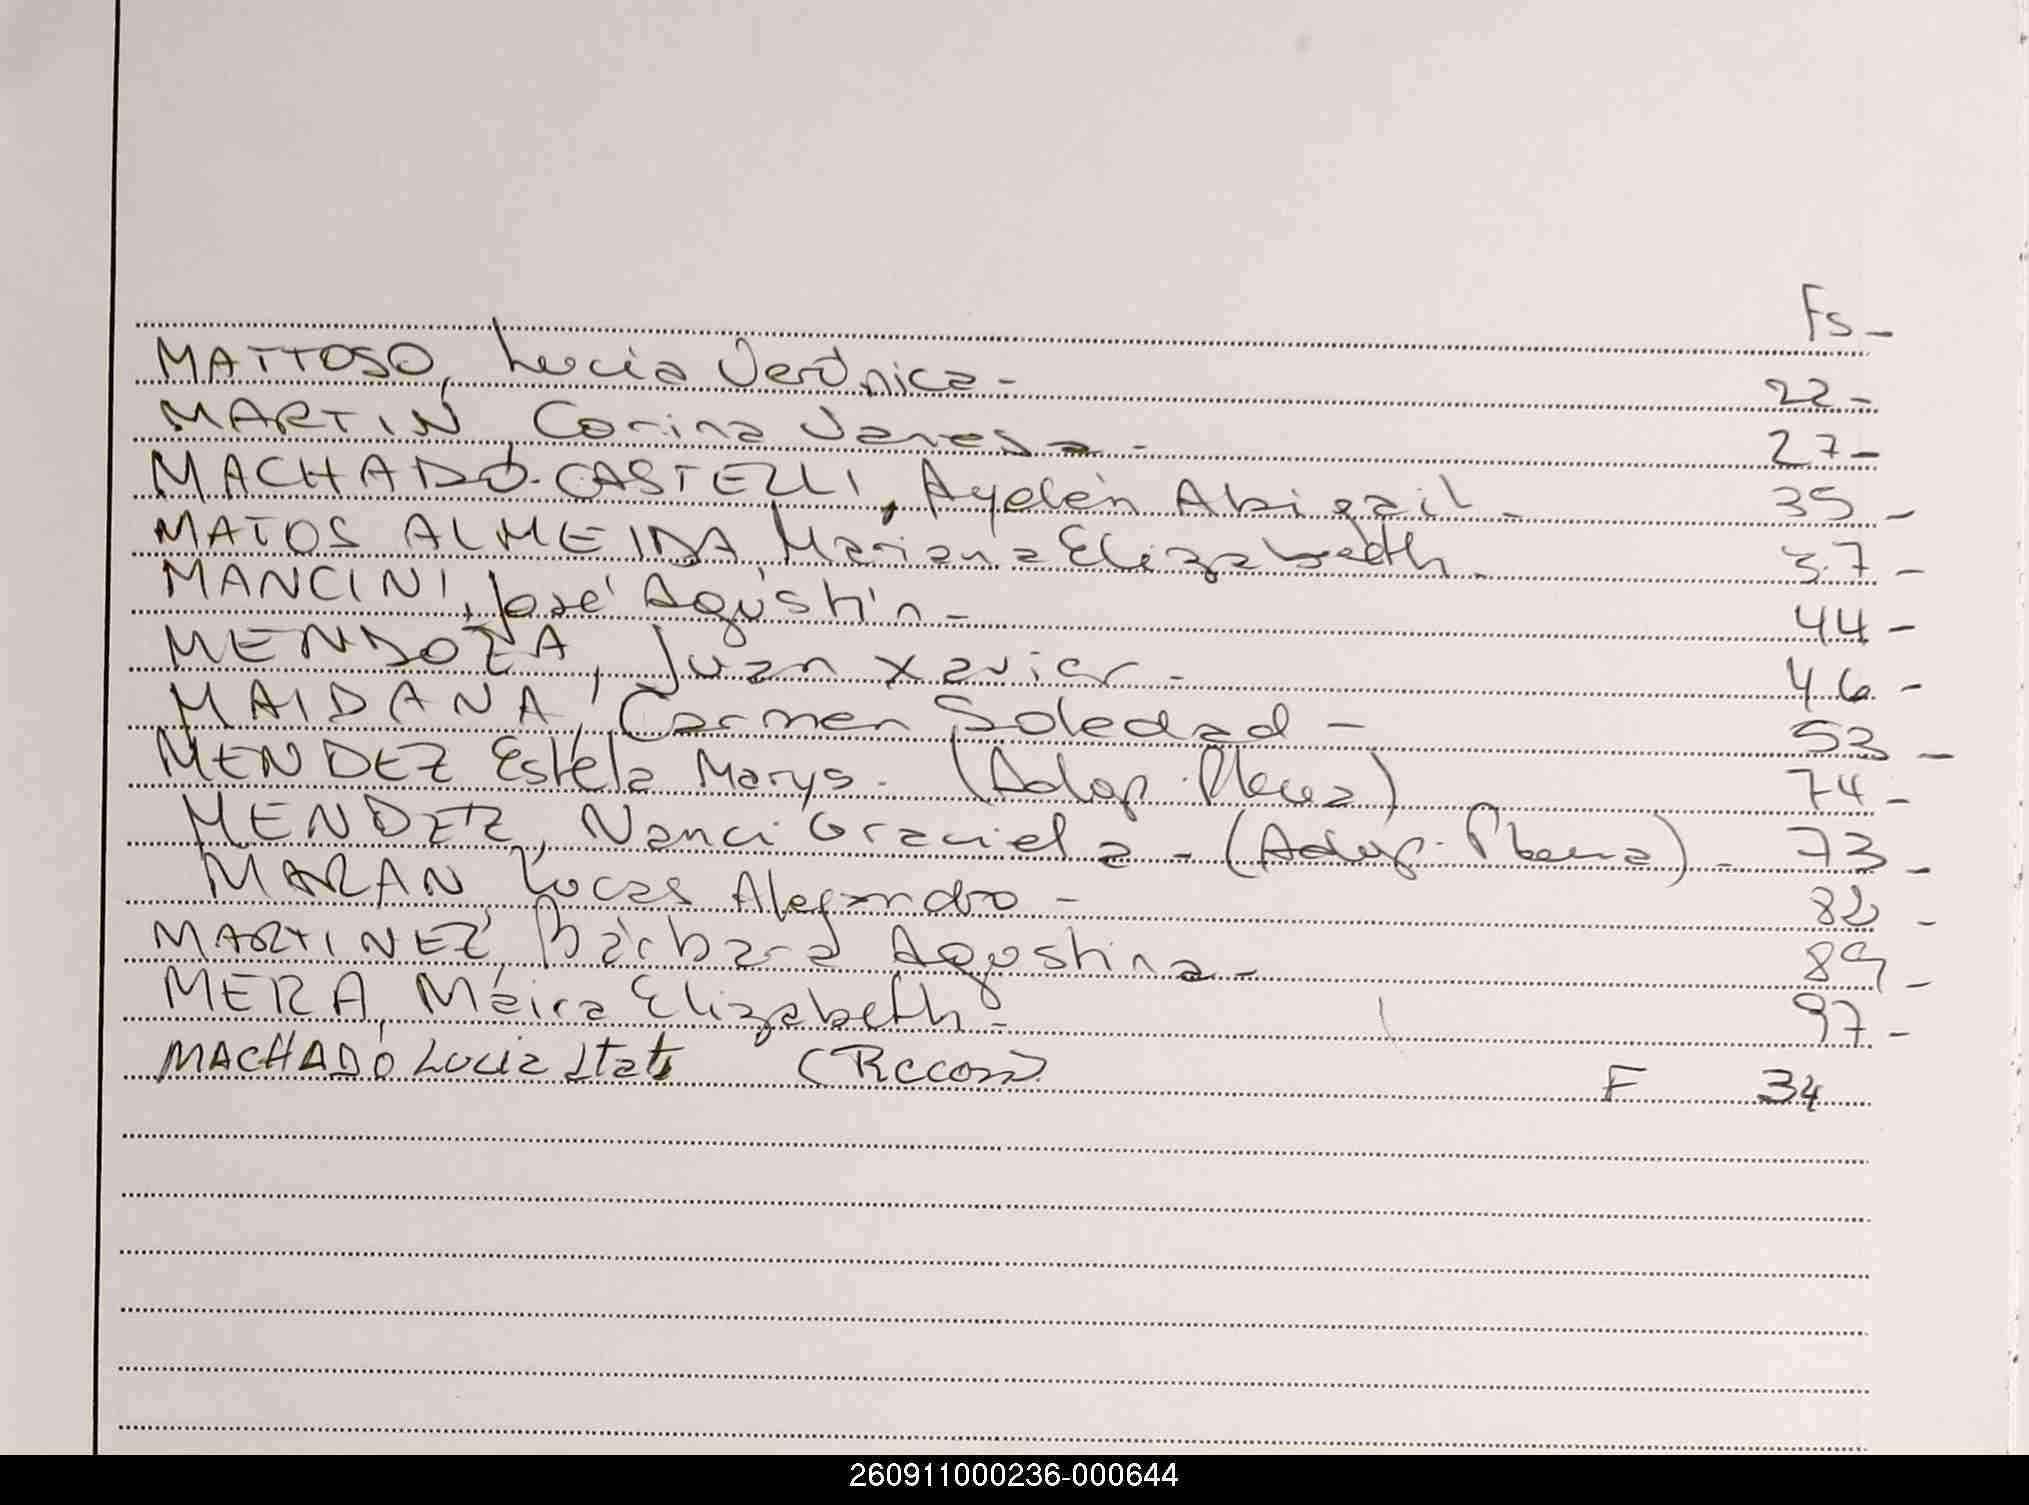 Fs-
MATTOSO, Lucia Verónica- 22-
MARTIN, Corina Vanesa- 27-
MACHADO-CASTELLI, Ayelén Abigail- 35-
MATOS ALMEIDA Mariana Elizabeth- 37-
MANCINI, José Agústín- 44-
MENDOZA, Juan Xavier- 46-
MAIDANA, Carmen Soledad- 53-
MENDEZ Estela Marys- (Adop. Plena) 74-
MENDEZ, Nanci Graciela- (Adop. Plena)- 73-
MARAN, Lucas Alejandro-
MARTINEZ, Bárbara Agostina- 89-
MERA, Maira Elizabeth- 97-
MACHADO Lucia (Recon) F 34
260911000236-000644